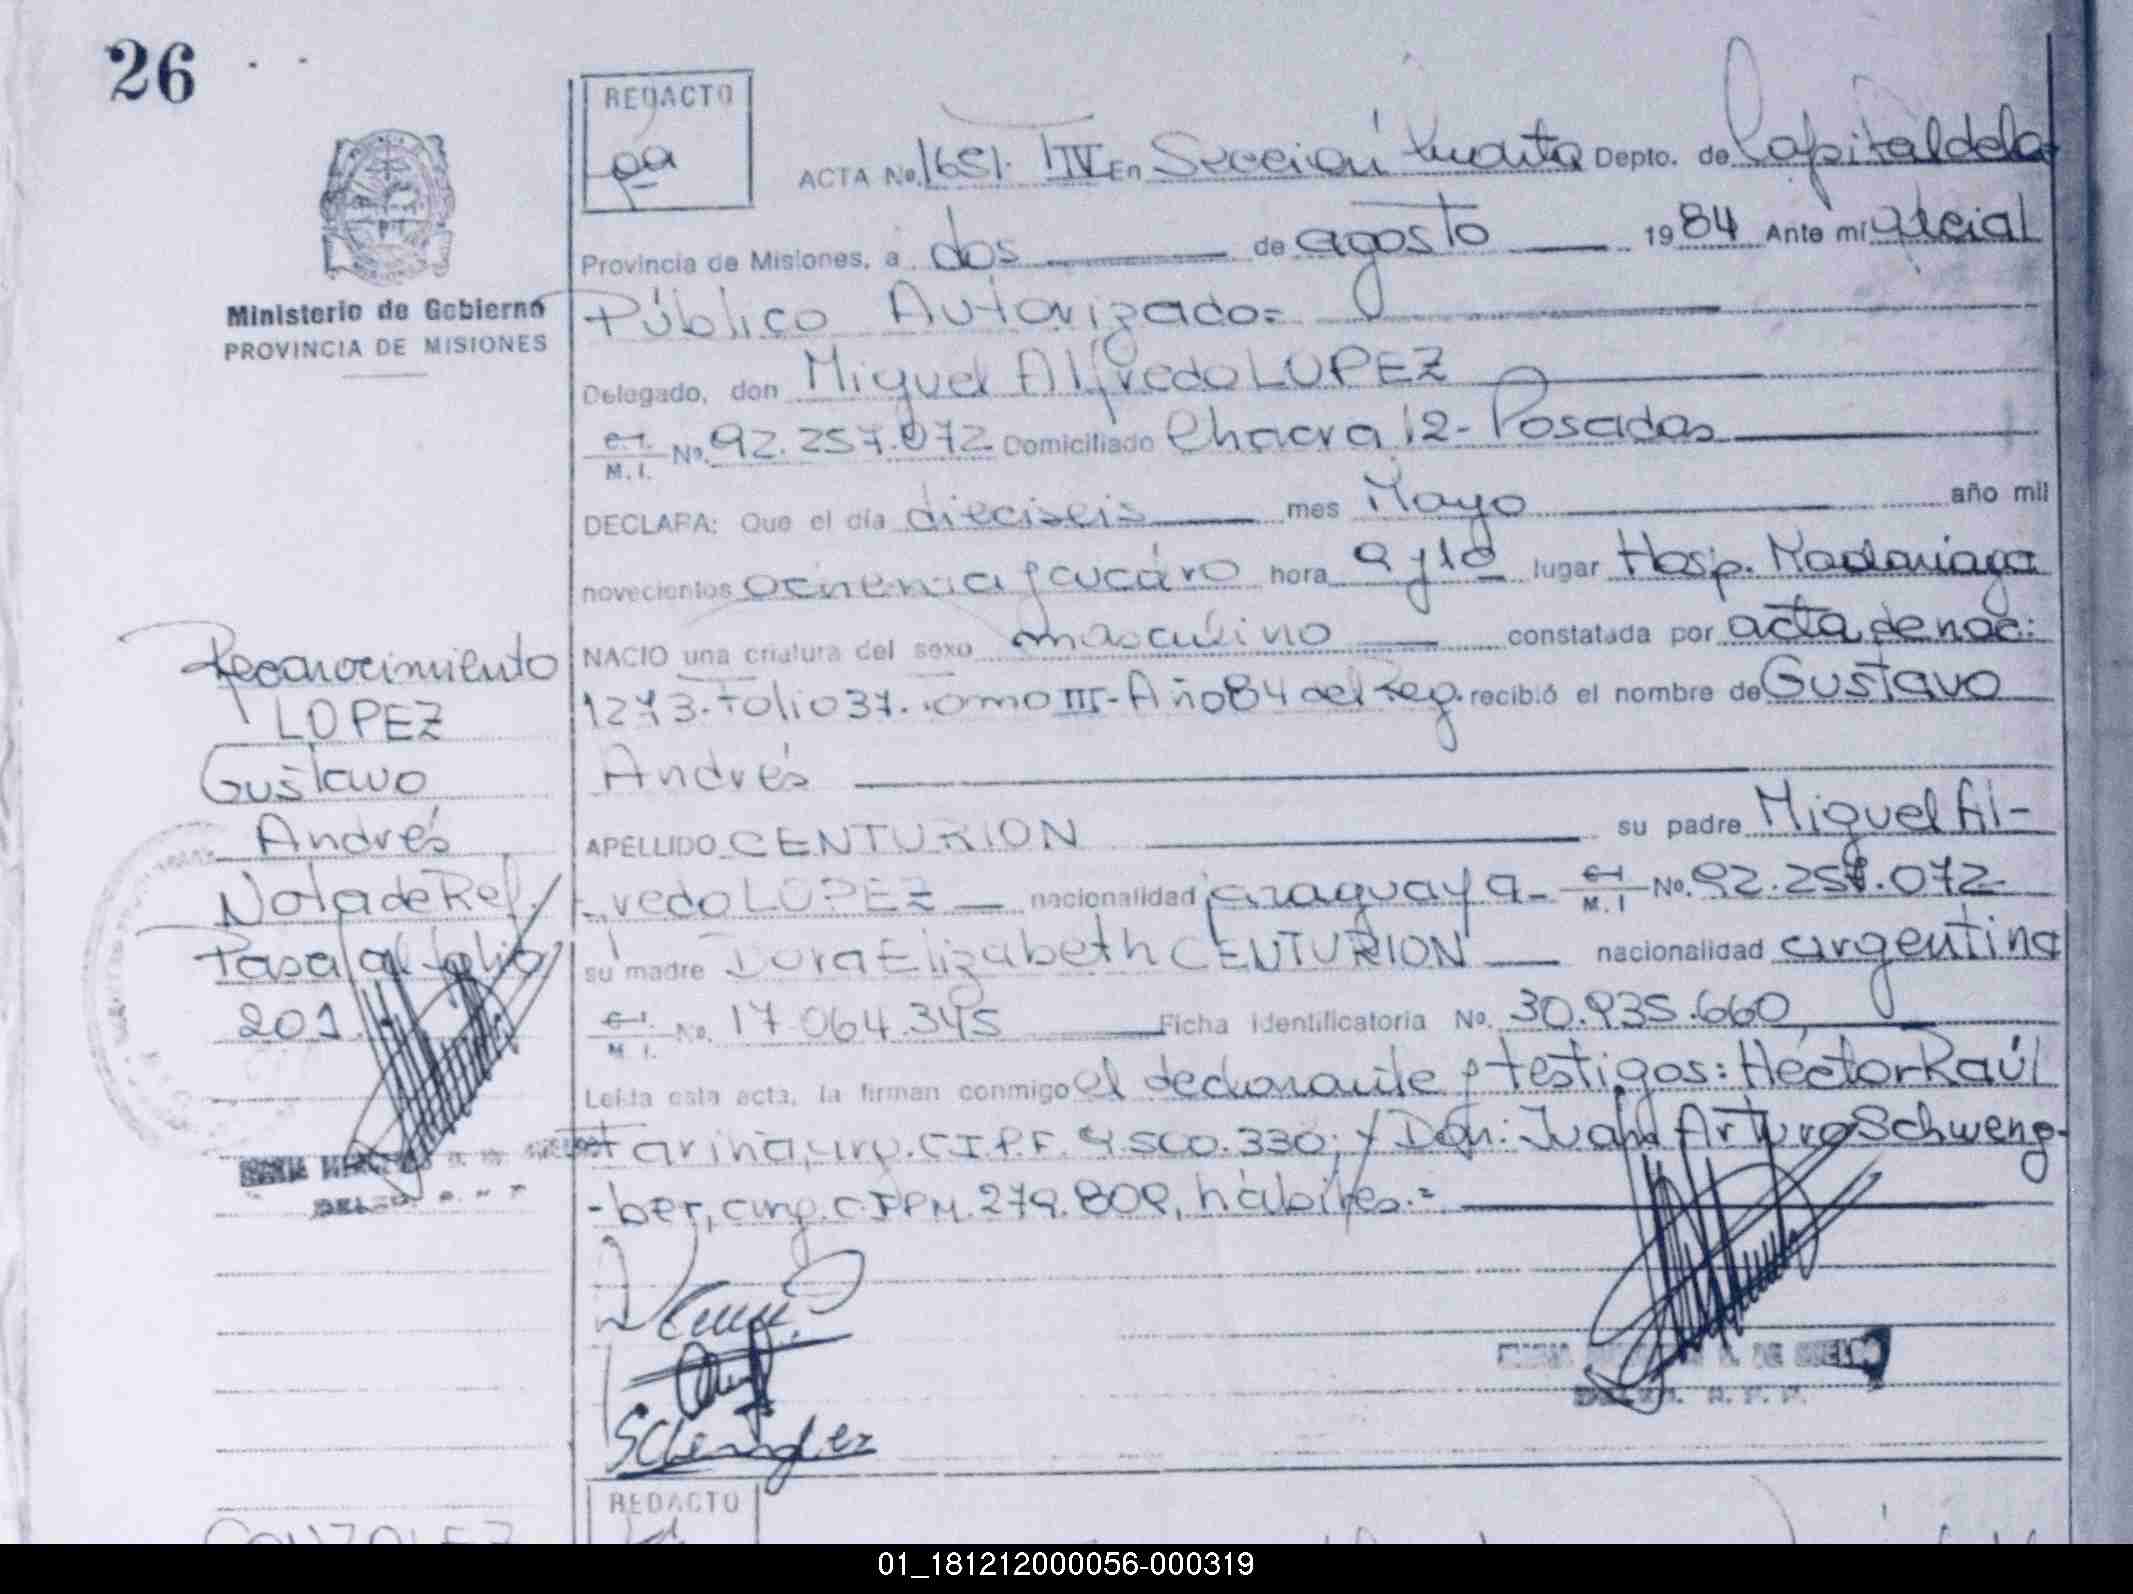 26
REDACTO
ACTA No. 1651. T IV En Sección Cuarta Depto. de Capital de la
Provincia de Misiones, a dos de agosto 1984 Ante mí Oficial
Ministerio de Gobierno
PROVINCIA DE MISIONES
Público Autorizado=
Delegado, don Miguel Alfredo LOPEZ
C.I. M.I. No. 92.257.072 Domiciliado Chacra 12 - Posadas
DECLARA: Que el día dieciseis mes Mayo año mil
novecientos ochenta y cuatro hora 9 y 10 lugar Hosp. Madariaga
NACIO una criatura del sexo masculino constatada por acta de nac:
1273. Folio 37. Tomo III - Año 84 del Reg. recibió el nombre de Gustavo
Andrés
APELLIDO CENTURION su padre Miguel Al-
fredo LOPEZ nacionalidad paraguaya - C.I. M.I No. 92.257.072
su madre Dora Elizabeth CENTURION nacionalidad argentina
C.I. M.I. No. 17.064.345 Ficha identificatoria No. 30.935.660
Leída esta acta, la firman conmigo el declarante y testigos: Héctor Raúl
Fariña, uru. C.I.P.F. 9.500.330; y Don: Juan Arturo Schweng-
-ber, C.I.P.M. 279.809, hábiles.=
Reconocimiento
LOPEZ
Gustavo
Andrés
Nota de Ref.
Pasa al folio
201
REDACTO
01_181212000056-000319